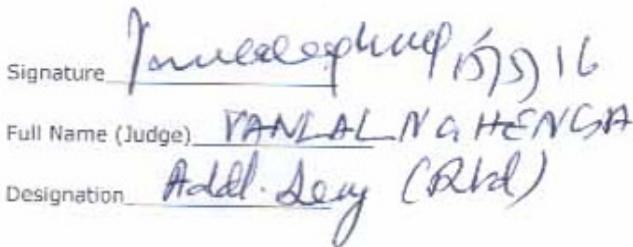 Signature 15/5/16
Full Name (Judge) VANLALNGHENGA
Designation Addl. Secy (Rtd)